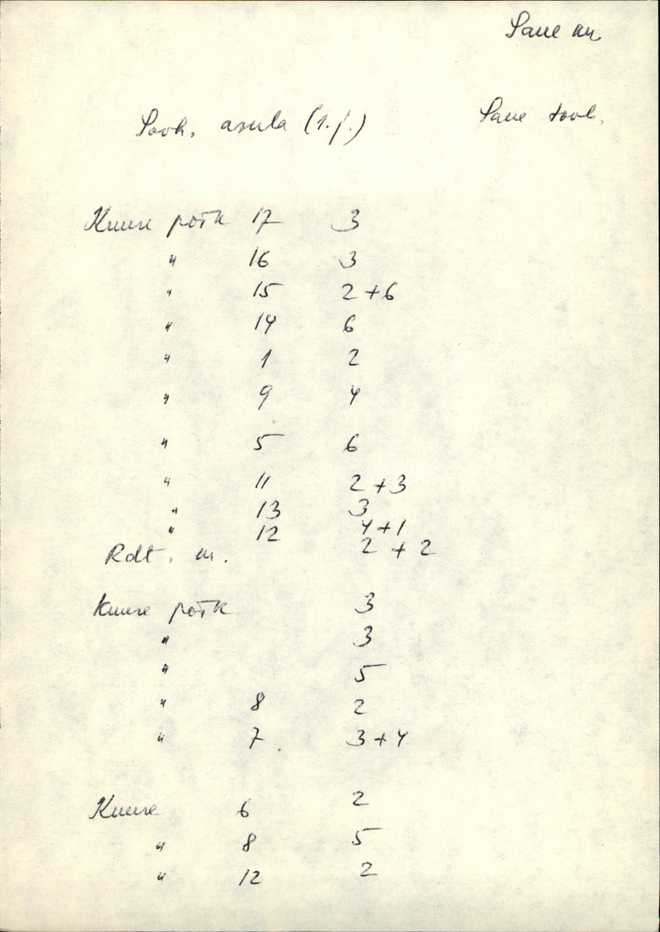 Saue
Sook. asula (1.j.) Saue tööl.
Kuuse põik 17 3
" 16 3
" 15 2+6
" 14 6
" 1 2
" 9 4
" 5 6
" 11 2+3
" 13 3
" 12 4+1
Rdt. m. 2+2
Kuuse põik 3
" 3
" 5
" 8 2
" 7 3+4
Kuuse 6 2
" 8 5
" 12 2